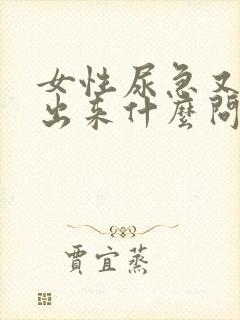 女性尿急又
出来什麼問
賈宜蒸